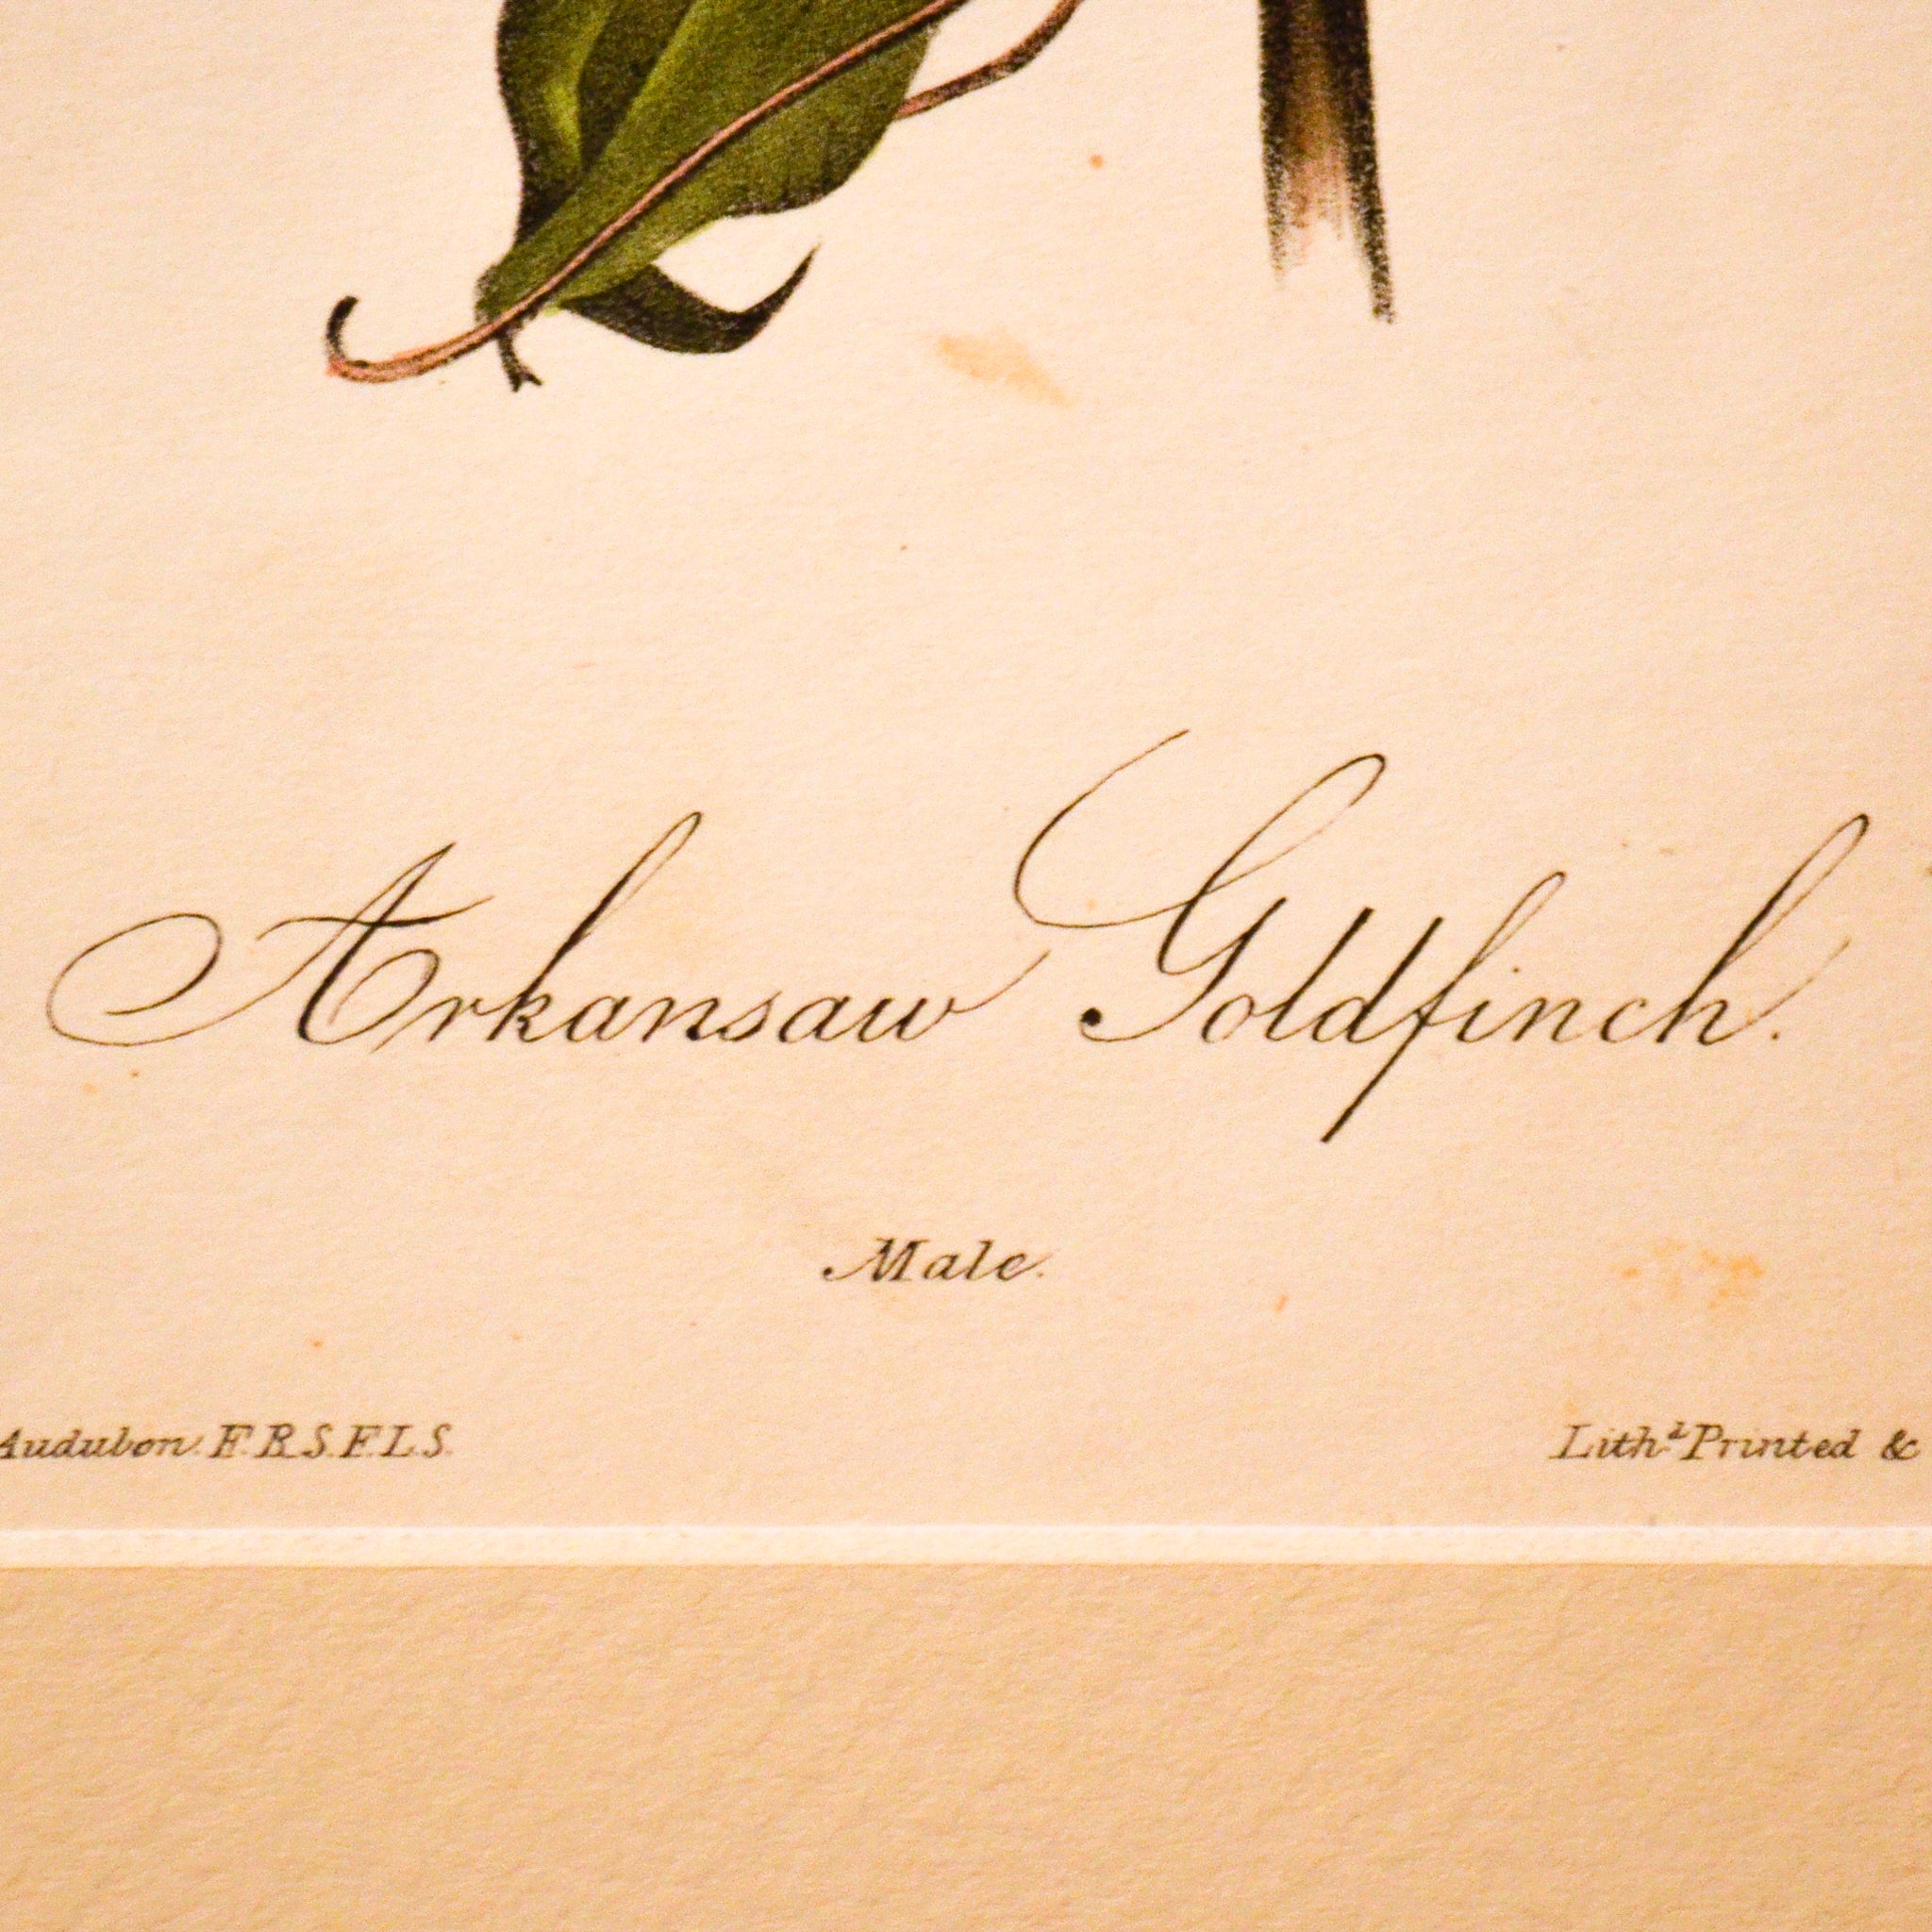 Arkansaw Goldfinch.
Male.
Audubon. F.R.S.F.L.S.
Lith.d Printed &